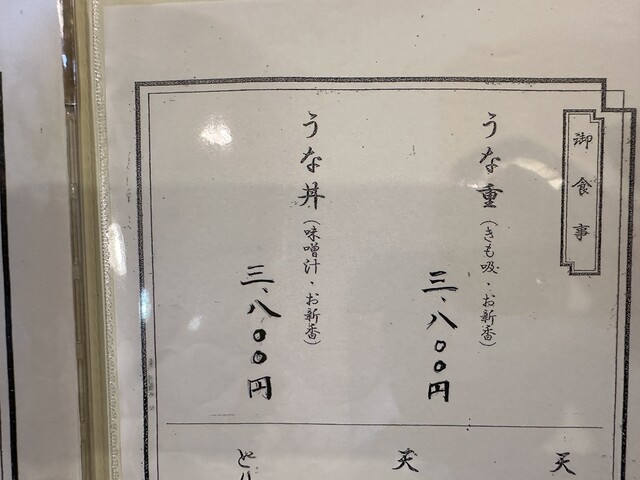 御食事
うな重（きも吸・お新香）
三、八〇〇円
うな丼（味噌汁・お新香）
三、八〇〇円
天
天